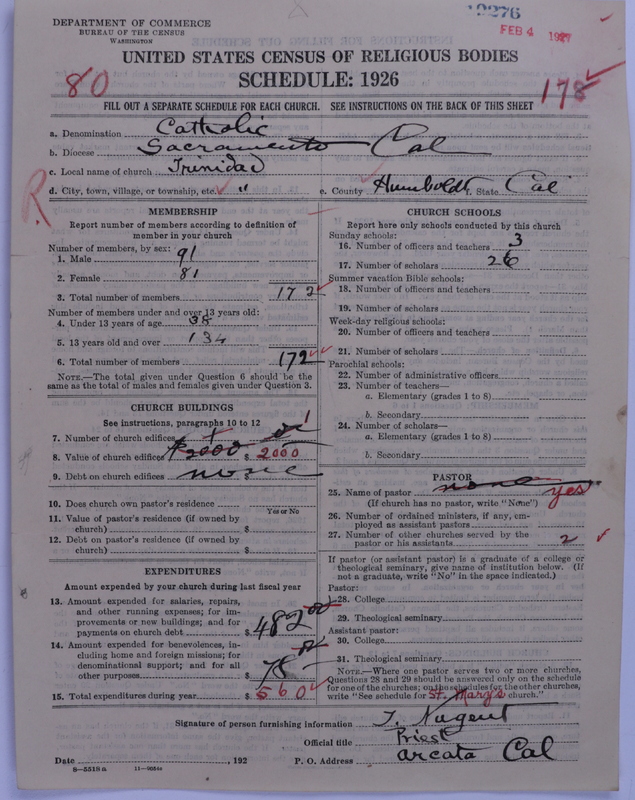 DEPARTMENT OF COMMERCE
BUREAU OF THE CENSUS
WASHINGTON
FEB 4 1927
UNITED STATES CENSUS OF RELIGIOUS BODIES
SCHEDULE: 1926
80
178
FILL OUT A SEPARATE SCHEDULE FOR EACH CHURCH. SEE INSTRUCTIONS ON THE BACK OF THIS SHEET
a. Denomination Catholic
b. Diocese Sacramento Cal
c. Local name of church Trinidad
d. City, town, village, or township, etc. " e. County Humboldt f. State Cal
R
MEMBERSHIP
Report number of members according to definition of
member in your church
Number of members, by sex:
1. Male 91
2. Female 81
3. Total number of members 172
Number of members under and over 13 years old:
4. Under 13 years of age 38
5. 13 years old and over 134
6. Total number of members 172
NOTE.—The total given under Question 6 should be the
same as the total of males and females given under Question 3.
CHURCH BUILDINGS
See instructions, paragraphs 10 to 12
7. Number of church edifices 1 1
8. Value of church edifices $2000 $ 2000
9. Debt on church edifices none
10. Does church own pastor's residence
Yes or No
11. Value of pastor's residence (if owned by
church) $
12. Debt on pastor's residence (if owned by
church) $
EXPENDITURES
Amount expended by your church during last fiscal year
13. Amount expended for salaries, repairs,
and other running expenses; for im-
provements or new buildings; and for
payments on church debt $ 482
14. Amount expended for benevolences, in-
cluding home and foreign missions; for
denominational support; and for all
other purposes $ 78
15. Total expenditures during year $ 560
CHURCH SCHOOLS
Report here only schools conducted by this church
Sunday schools:
16. Number of officers and teachers 3
17. Number of scholars 26
Summer vacation Bible schools:
18. Number of officers and teachers
19. Number of scholars
Week-day religious schools:
20. Number of officers and teachers
21. Number of scholars
Parochial schools:
22. Number of administrative officers
23. Number of teachers—
a. Elementary (grades 1 to 8)
b. Secondary
24. Number of scholars—
a. Elementary (grades 1 to 8)
b. Secondary
PASTOR
25. Name of pastor none yes
(If church has no pastor, write "None")
26. Number of ordained ministers, if any, em-
ployed as assistant pastors
27. Number of other churches served by the
pastor or his assistants 2
If pastor (or assistant pastor) is a graduate of a college or
theological seminary, give name of institution below. (If
not a graduate, write "No" in the space indicated.)
Pastor:
28. College
29. Theological seminary
Assistant pastor:
30. College
31. Theological seminary
NOTE.—Where one pastor serves two or more churches,
Questions 28 and 29 should be answered only on the schedule
for one of the churches; on the schedules for the other churches,
write "See schedule for St. Mary's church."
Signature of person furnishing information T. Nugent
Official title Priest
Date , 192 P. O. Address Arcata Cal
8—5519a 11—9054a